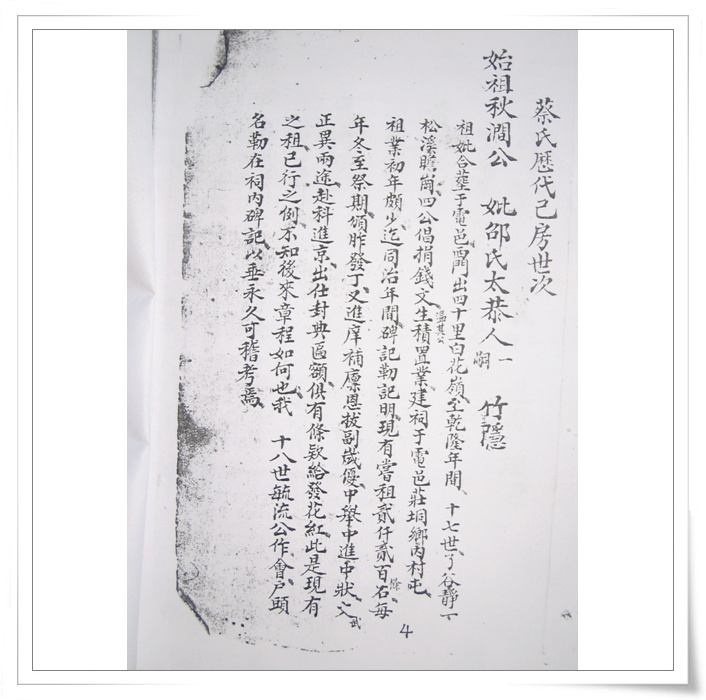 蔡氏歷代己房世次
始祖秋澗公 妣邵氏太恭人 一嗣 竹隱
祖妣合塋于電邑西門出四十里白花嶺至乾隆年間、十七世、谷靜、
松溪瞻崗四公倡捐錢文生積置業建祠于電邑莊垌鄉內村屯、
溫其公
祖業初年頗少迄同治年間碑記勒記明現有嘗租貳仟貳百石每
餘
年冬至祭期頒胙發丁又進庠補廩恩拔副歲優中舉中進中狀文
武
正異兩途赴科進京出仕封典匾額俱有條欵給發花紅此是現有
之租已行之例不知後來章程如何也我 十八世毓流公作會戶頭
名勒在祠內碑記以垂永久可稽考焉
4